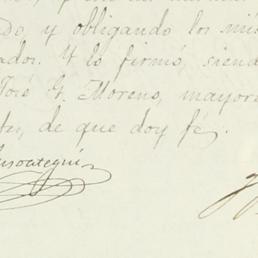 do, y obligando los mis
ados. Y lo firmó, siend
José G. Moreno, mayore
de que doy fé.